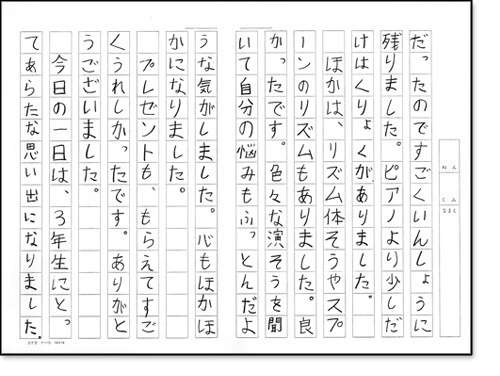 ねん
くみ
なまえ
だったのですごくいんしょうに
残りました。ピアノより少しだ
けはくりょくがありました。
ほかは、リズム体そうやスプ
ーンのリズムもありました。良
かったです。色々な演そうを聞
いて自分の悩みもふっとんだよ
うな気がしました。心もほかほ
かになりました。
プレゼントも、もらえてすご
くうれしかったです。ありがと
うございました。
今日の一日は、3年生にとっ
てあらたな思い出になりました。